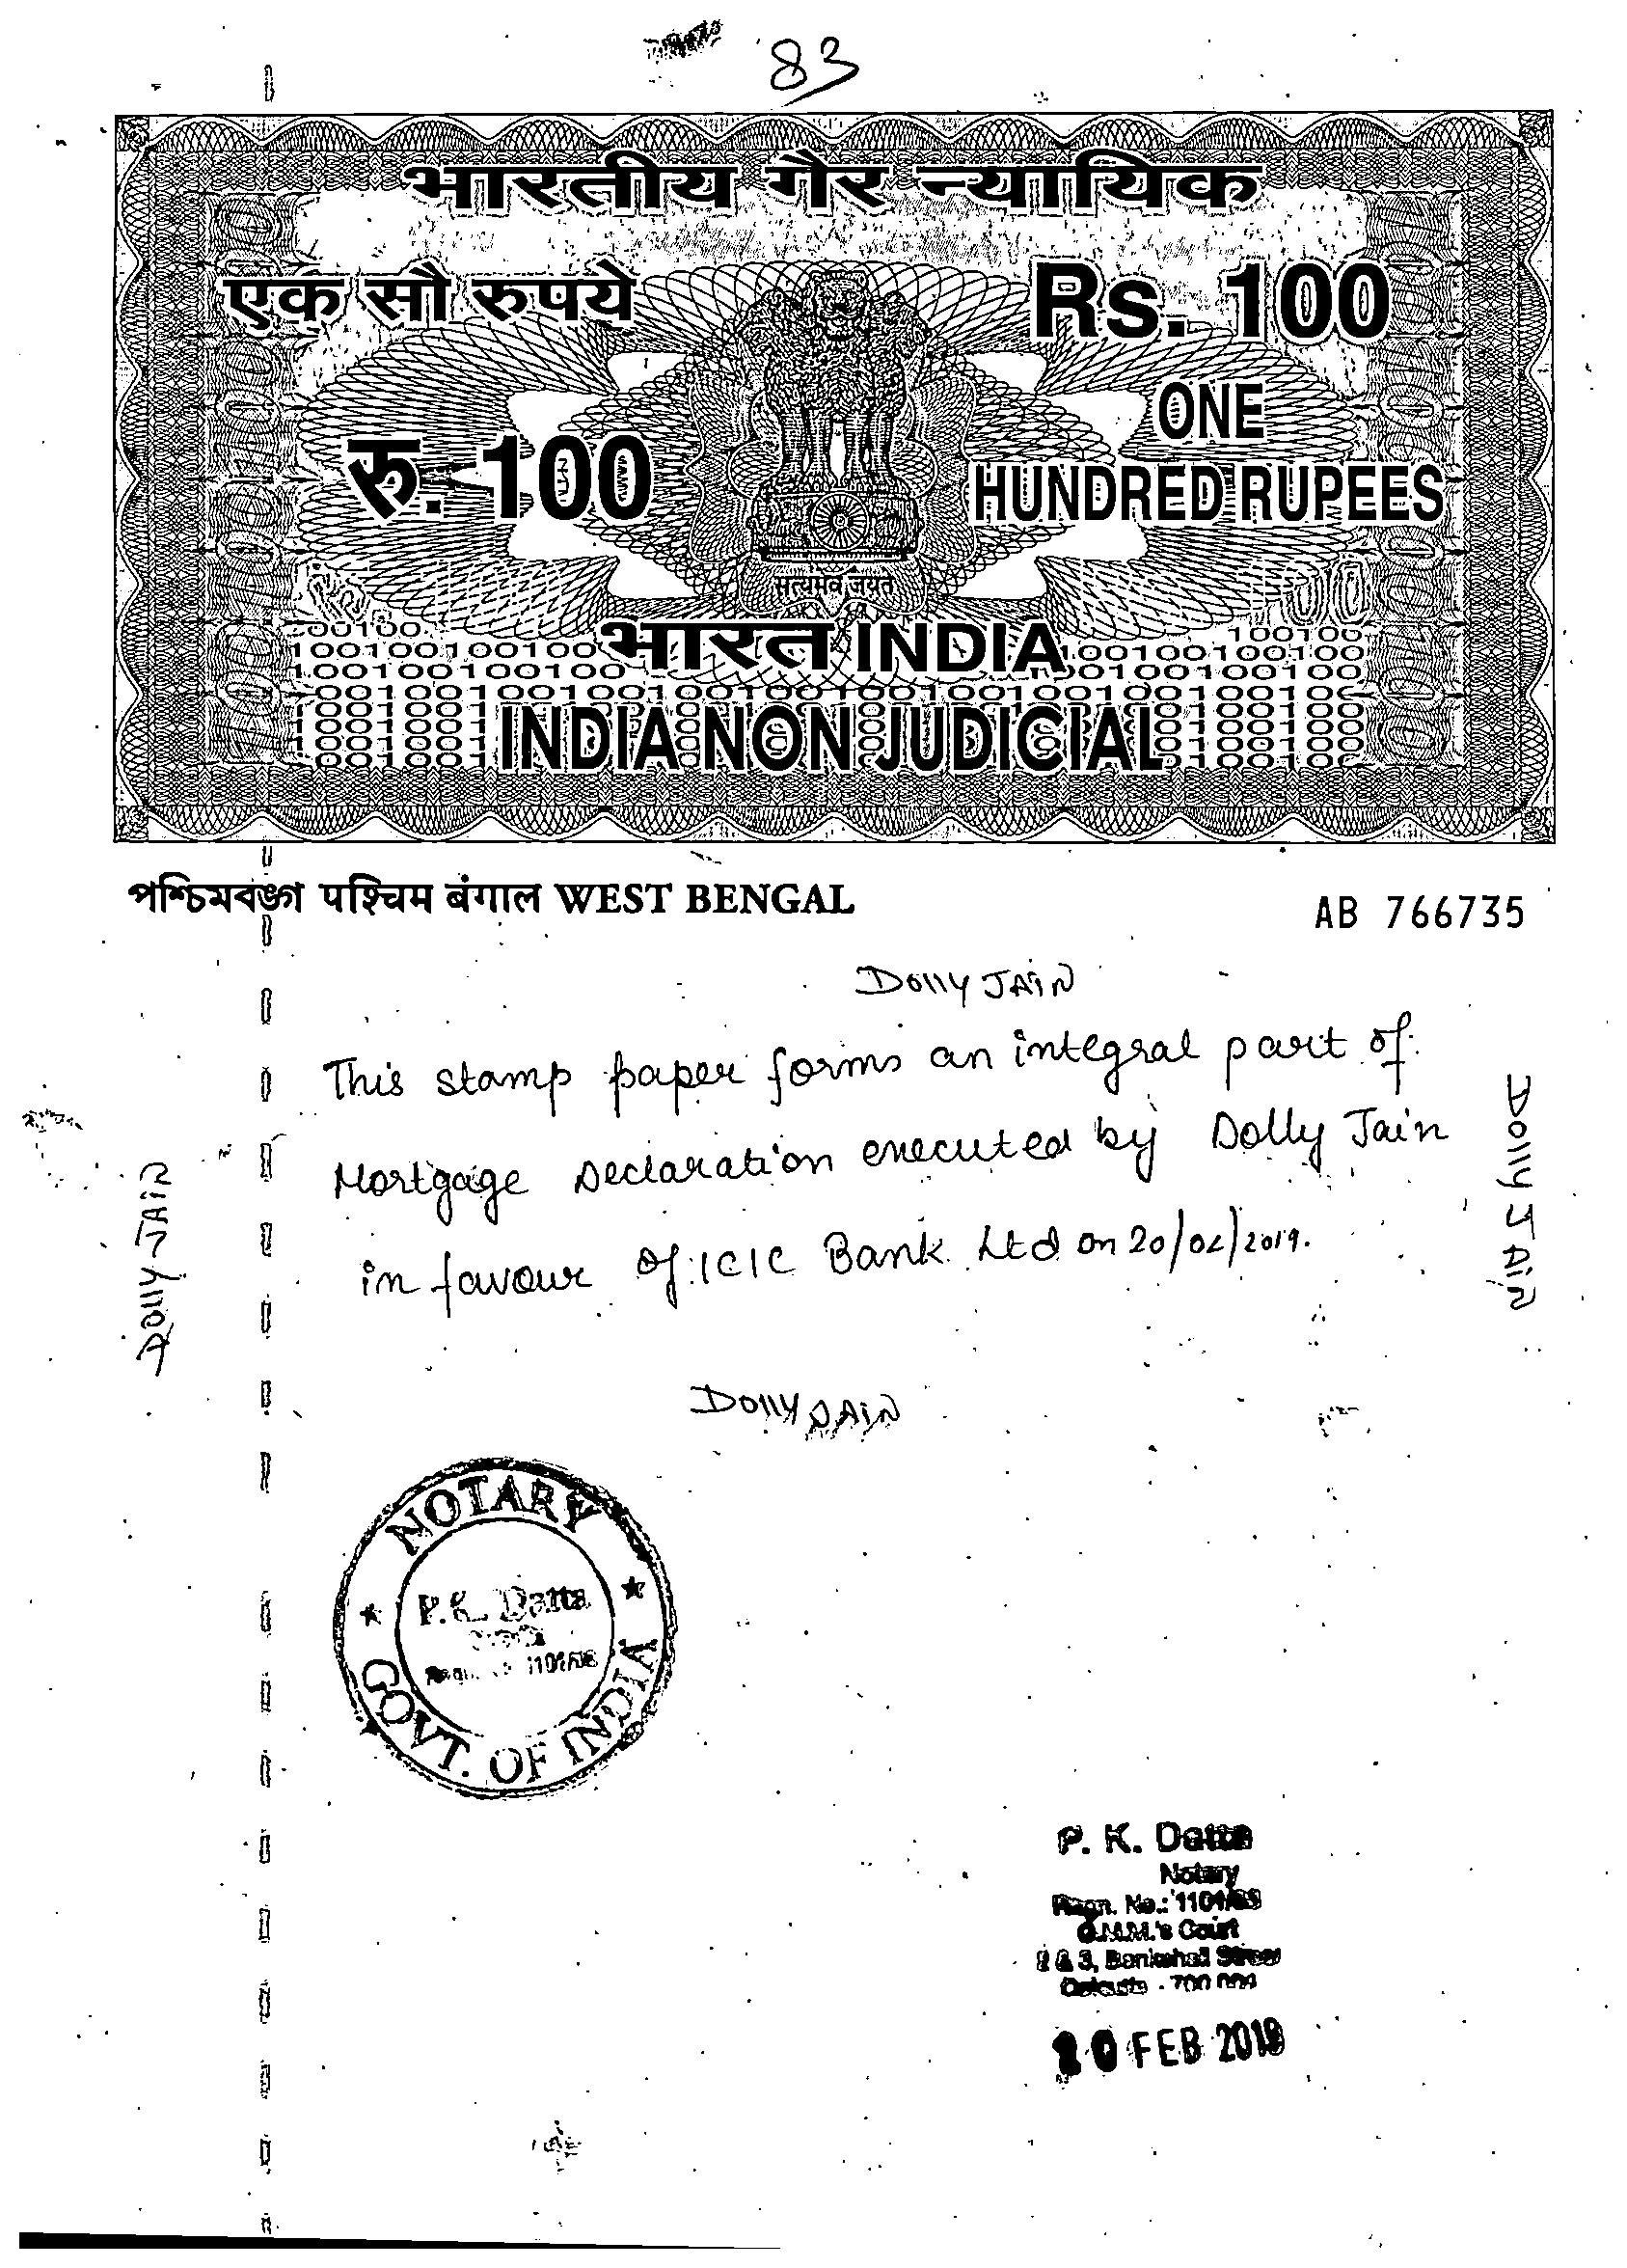 83
भारतीय गैर न्यायिक
एक सौ रुपये
Rs. 100
रु. 100
ONE
HUNDRED RUPEES
सत्यमेव जयते
भारत INDIA
INDIA NON JUDICIAL
পশ্চিমবঙ্গ पश्चिम बंगाल WEST BENGAL
AB 766735
Dolly JAIN
This stamp paper forms an integral part of
Mortgage Declaration executed by Dolly Jain
in favour of ICIC Bank Ltd on 20/02/2019.
Dolly JAIN
Dolly JAIN
Dolly JAIN
NOTARY
P.K. Datta
GOVT. OF INDIA
P. K. Datta
Notary
Regn. No.: 1101/
C.M.M.'s Court
2 & 3, Bankshall Street
Calcutta - 700
20 FEB 2019